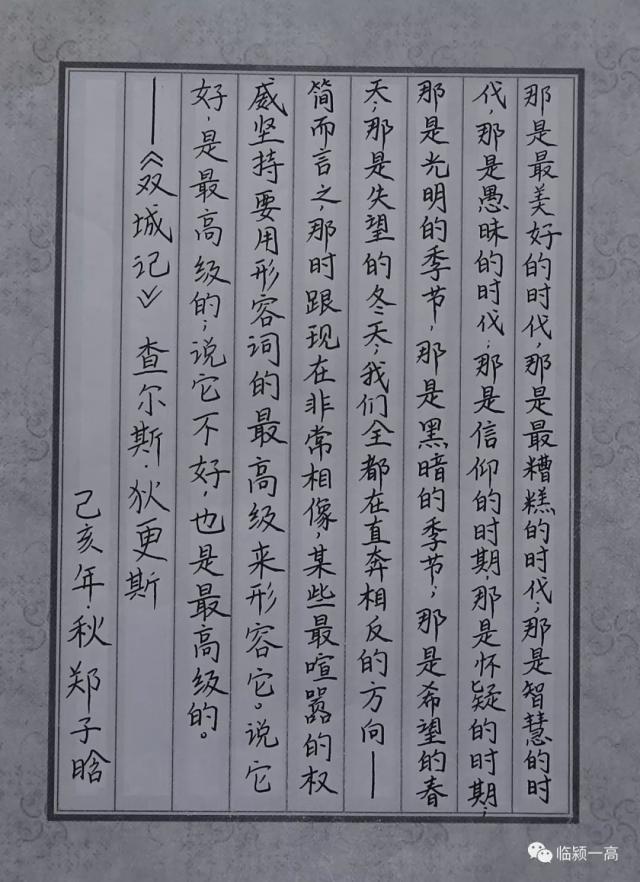 那是最美好的时代,那是最糟糕的时代;那是智慧的时
代,那是愚昧的时代;那是信仰的时期,那是怀疑的时期;
那是光明的季节,那是黑暗的季节;那是希望的春
天,那是失望的冬天;我们全都在直奔相反的方向——
简而言之那时跟现在非常相像,某些最喧嚣的权
威坚持要用形容词的最高级来形容它。说它
好,是最高级的;说它不好,也是最高级的。
——《双城记》 查尔斯·狄更斯
己亥年·秋郑子晗
临颍一高